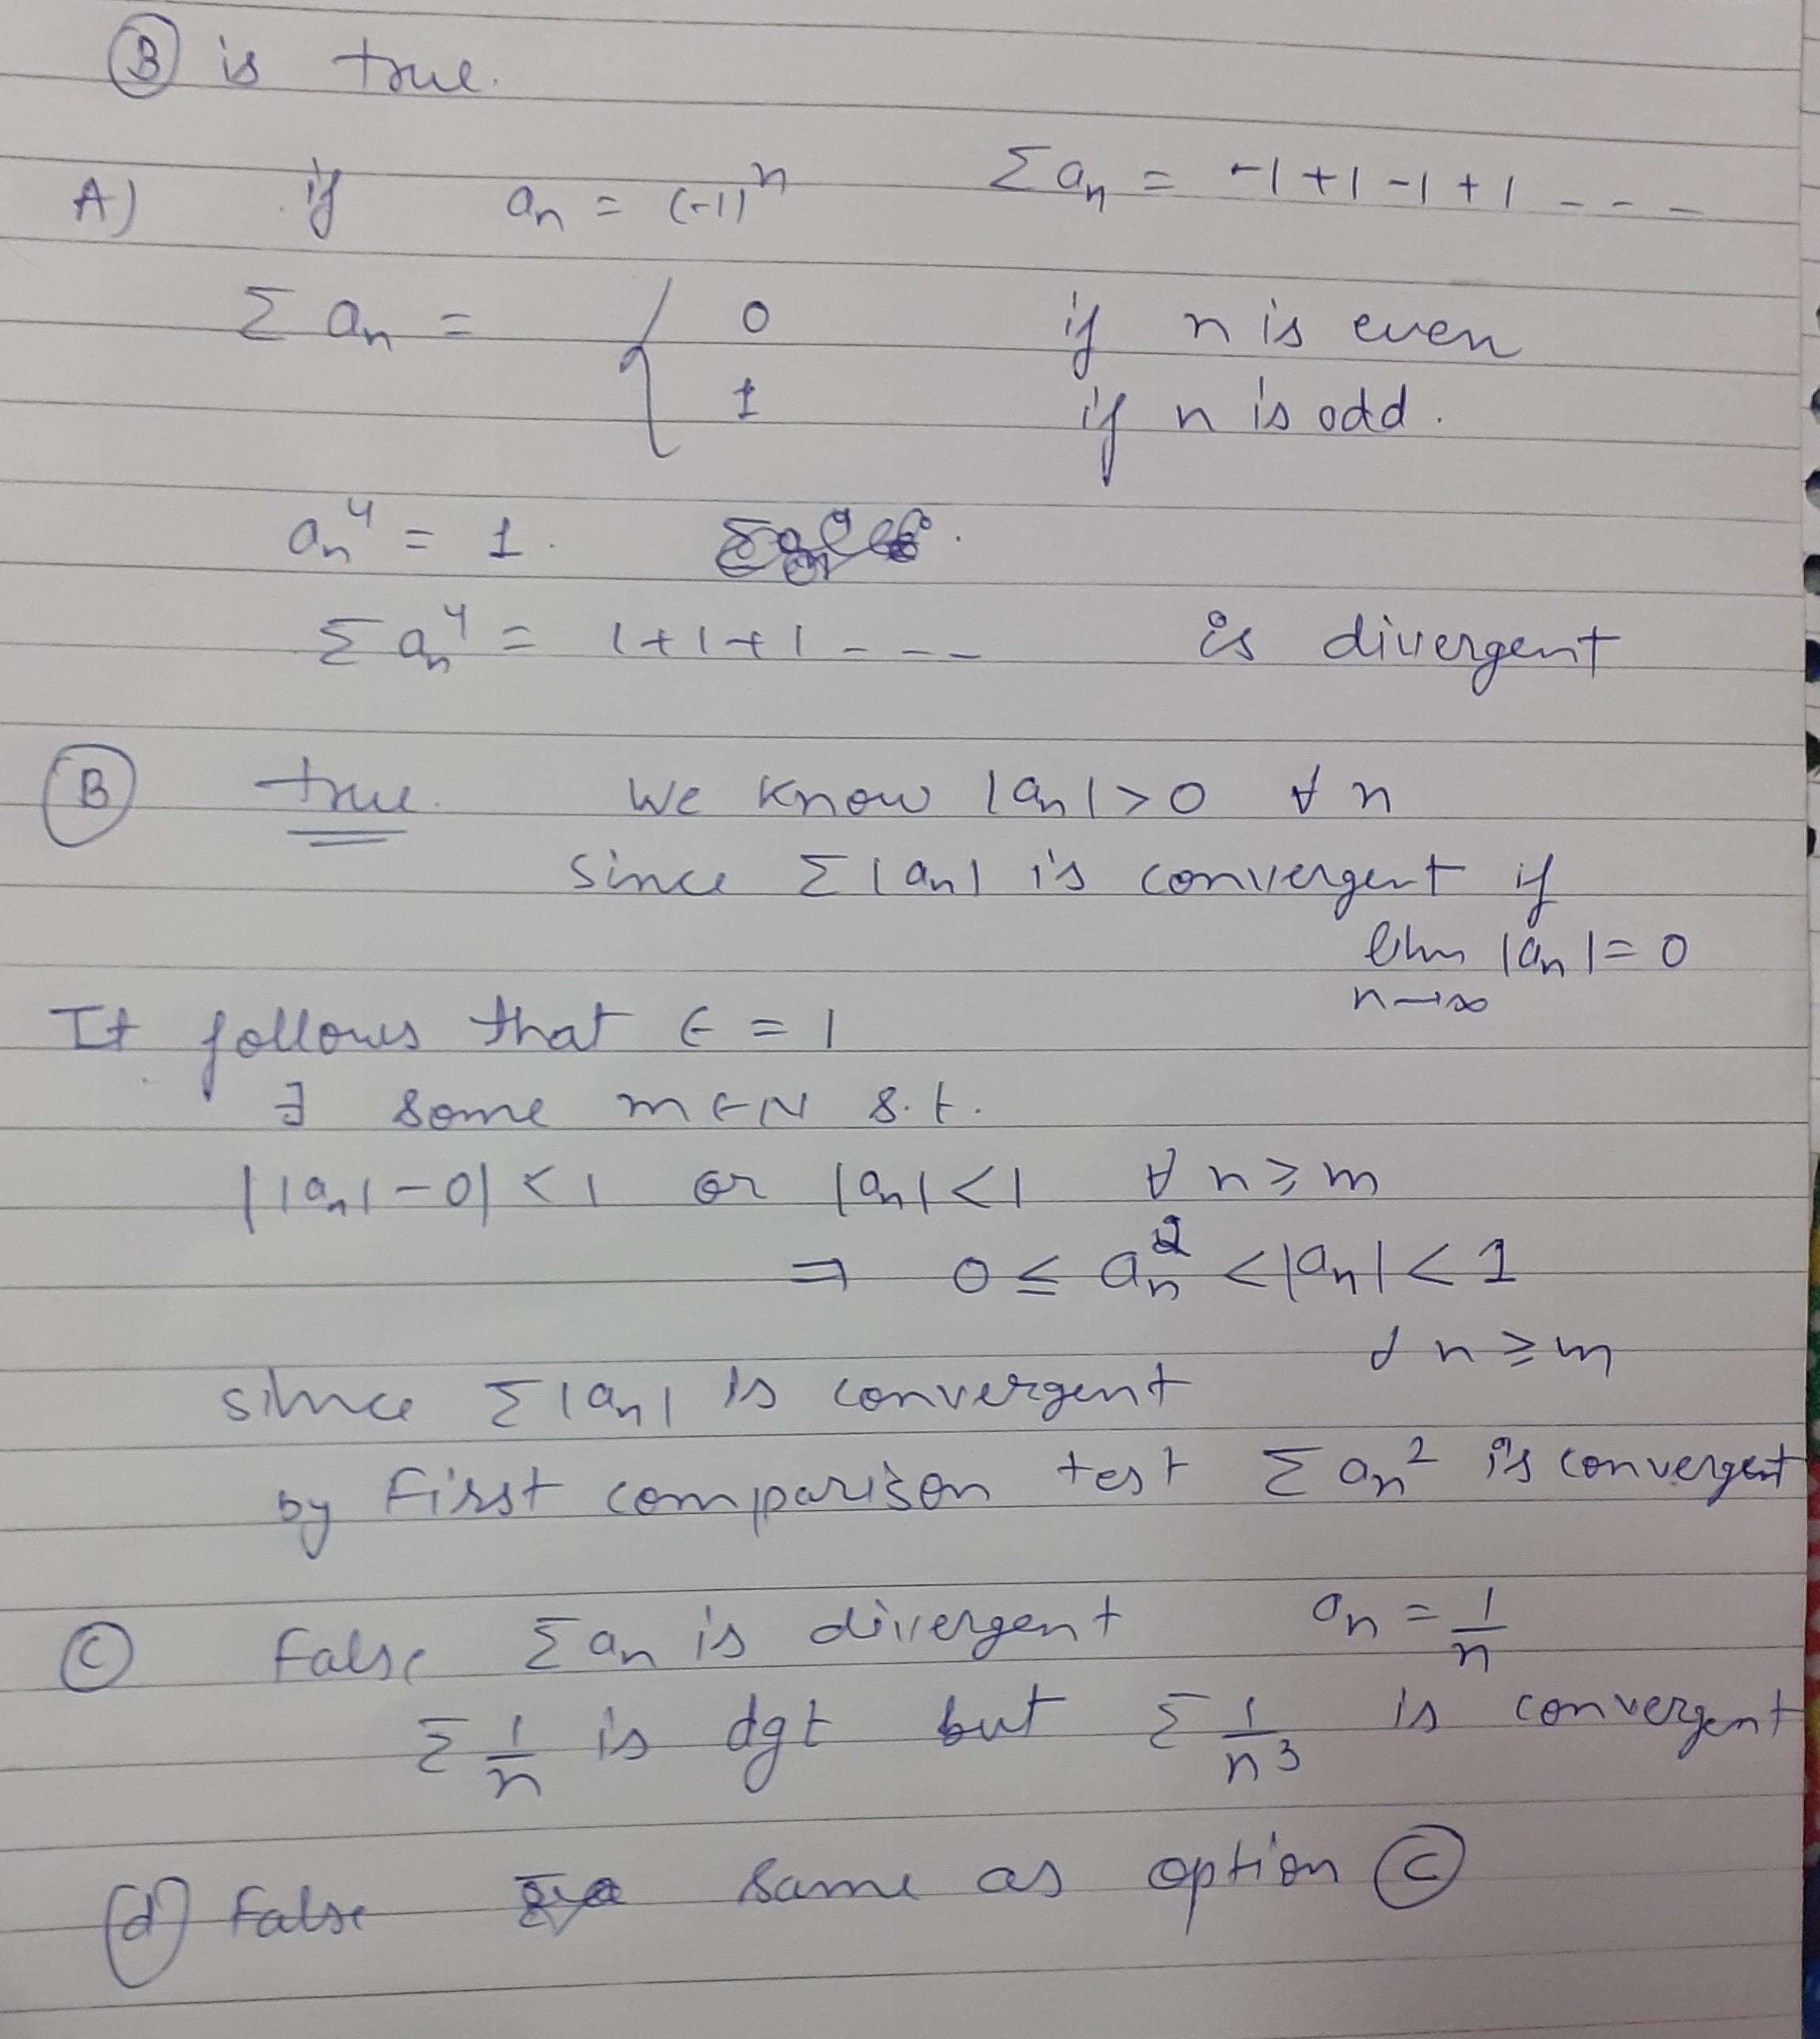 Ⓑ is true.
A) if an = (-1)^n Σ an = -1+1-1+1 - - -
Σ an = { 0 if n is even
1 if n is odd.
an^4 = 1.
Σ an^4 = 1+1+1 - - - is divergent
Ⓑ true. We know |an|>0 ∀ n
since Σ|an| is convergent if
lim |an| = 0
n→∞
It follows that ϵ = 1
∃ some m∈N s.t.
||an|-0| < 1 or |an|<1 ∀ n≥m
⇒ 0 ≤ an^2 < |an| < 1
∀ n≥m
since Σ|an| is convergent
by First comparison test Σ an^2 is convergent
Ⓒ False Σ an is divergent an = 1/n
Σ 1/n is dgt but Σ 1/n^3 is convergent
ⓓ False same as option Ⓒ